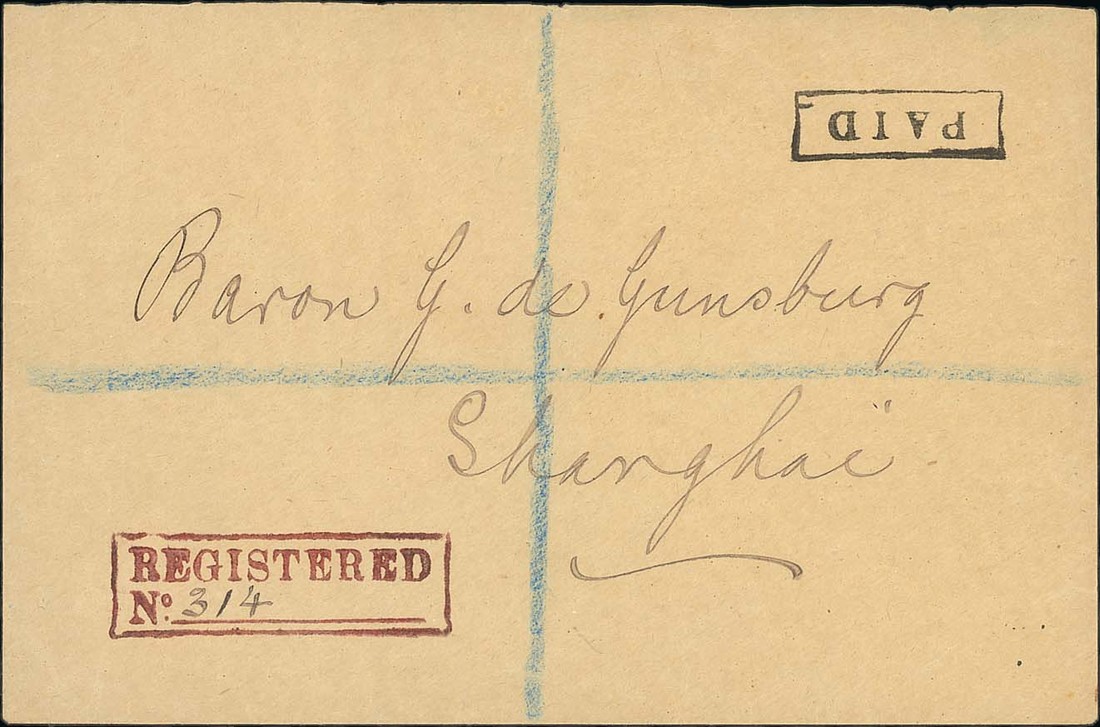 PAID
Baron G. de Gunsburg
Shanghaï
REGISTERED
Nº. 314